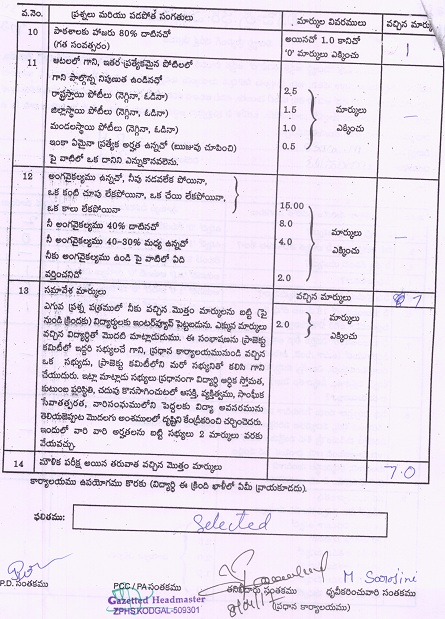 వ.నెం. ప్రశ్నలు మరియు పడపోత సంగతులు మార్కుల వివరములు వచ్చిన మార్కు
10 పాఠశాలకు హాజరు 80% దాటినచో అయినచో 1.0 కానిచో
(గత సంవత్సరం) '0' మార్కులు ఎక్కించు 1
11 ఆటలలో గాని, ఇతర ప్రత్యేకమైన పోటీలలో
గాని పాల్గొన్న నిపుణుత ఉండినచో
రాష్ట్రస్థాయి పోటీలు (నెగ్గినా, ఓడినా) 2.5
జిల్లాస్థాయి పోటీలు (నెగ్గినా, ఓడినా) 1.5 మార్కులు –
మండలస్థాయి పోటీలు (నెగ్గినా, ఓడినా) 1.0 ఎక్కించు
ఇంకా ఏమైనా ప్రత్యేక అర్హత ఉన్నచో (ఋజువు చూపించి) 0.5
పై వాటిలో ఒక దానిని ఎన్నుకొనవలెను.
12 అంగవైకల్యము ఉన్నచో, నీవు నడవలేక పోయినా,
ఒక కంటి చూపు లేకపోయినా, ఒక చేయి లేకపోయినా,
ఒక కాలు లేకపోయినా 15.00
నీ అంగవైకల్యము 40% దాటినచో 8.0 మార్కులు
నీ అంగవైకల్యము 40-30% మధ్య ఉన్నచో 4.0 ఎక్కించు –
నీకు అంగవైకల్యము ఉండి పై వాటిలో ఏది
వర్తించనిచో 2.0
13 సమావేశ మార్కులు వచ్చిన మార్కులు 1
ఎగువ ప్రశ్న పత్రములో నీకు వచ్చిన మొత్తం మార్కులను బట్టి (పై
నుండి క్రిందకు) విద్యార్థులకు ఇంటర్వ్యూస్ పెట్టబడును. ఎక్కువ మార్కులు 2.0 మార్కులు
వచ్చిన విద్యార్థితో మొదటి మాట్లాడుదుము. ఈ సంభాషణను ప్రాజెక్టు ఎక్కించు
కమిటీలో ఇద్దరి సభ్యులచే గాని, ప్రధాన కార్యాలయమునుండి వచ్చిన
ఒక సభ్యుడు, ప్రాజెక్టు కమిటీలోని మరో సభ్యునితో కలిసి గాని
చేయుదురు. ఇట్లా మాట్లాడు సభ్యులు ప్రధానంగా విద్యార్థి ఆర్థిక స్తోమత,
కుటుంబ పరిస్థితి, చదువు కొనసాగించుటలో ఆసక్తి, వ్యక్తిత్వము, సాంఘిక
సేవాతత్పరత, వారిసంఘములోని పెద్దలకు విద్యా అవసరమును
తెలియజెప్పుట మొదలగు అంశములలో దృష్టిని కేంద్రీకరించి చర్చించెదరు.
ఇందులో వారి వారి అర్హతలను బట్టి సభ్యులు 2 మార్కులు వరకు
వేయవచ్చు.
14 మౌలిక పరీక్ష అయిన తరువాత వచ్చిన మొత్తం మార్కులు 7.0
కార్యాలయము ఉపయోగము కొరకు (విద్యార్థి ఈ క్రింది ఖాళీలో ఏమీ వ్రాయకూడదు).
ఫలితము: selected
P.D. సంతకము PCC / PA సంతకము తనిఖీదారు సంతకము M Sarojini ధృవీకరించువారి సంతకము
Gazetted Headmaster (ప్రధాన కార్యాలయము)
ZPHS KODGAL-509301